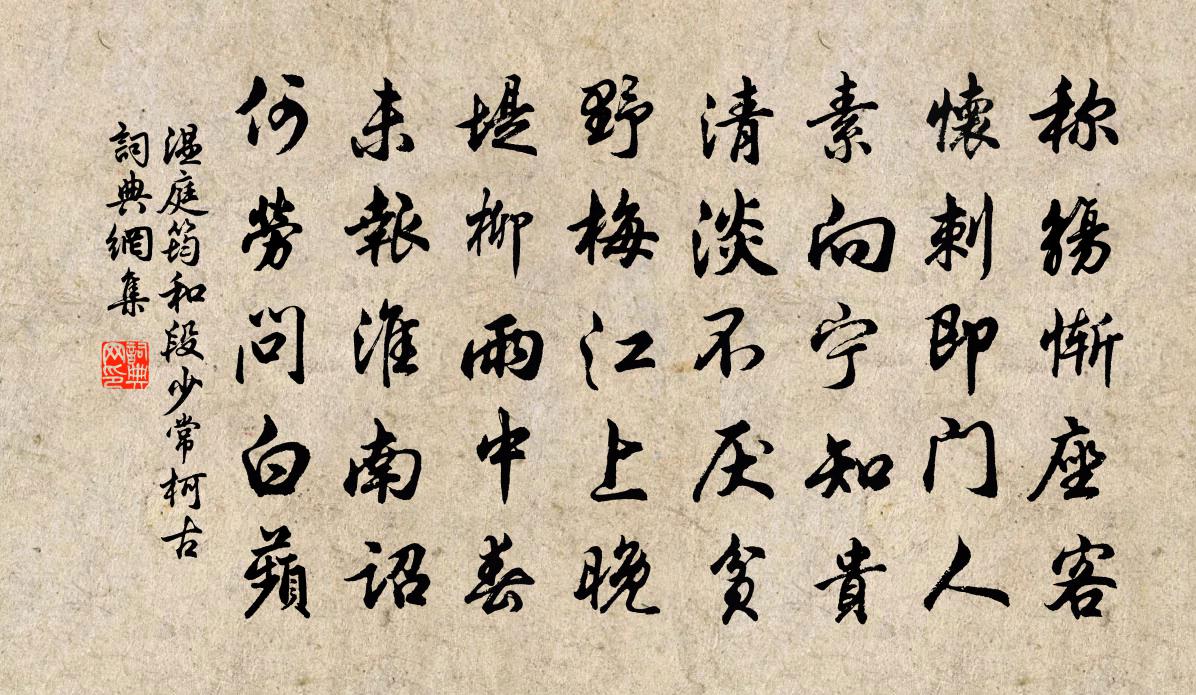 称觞惭座客
懷刺即门人
素向宁知貴
清淡不厌贫
野梅江上晚
堤柳雨中春
未報淮南詔
何勞問白蘋
温庭筠和段少常柯古
詞典網集
詞典网印